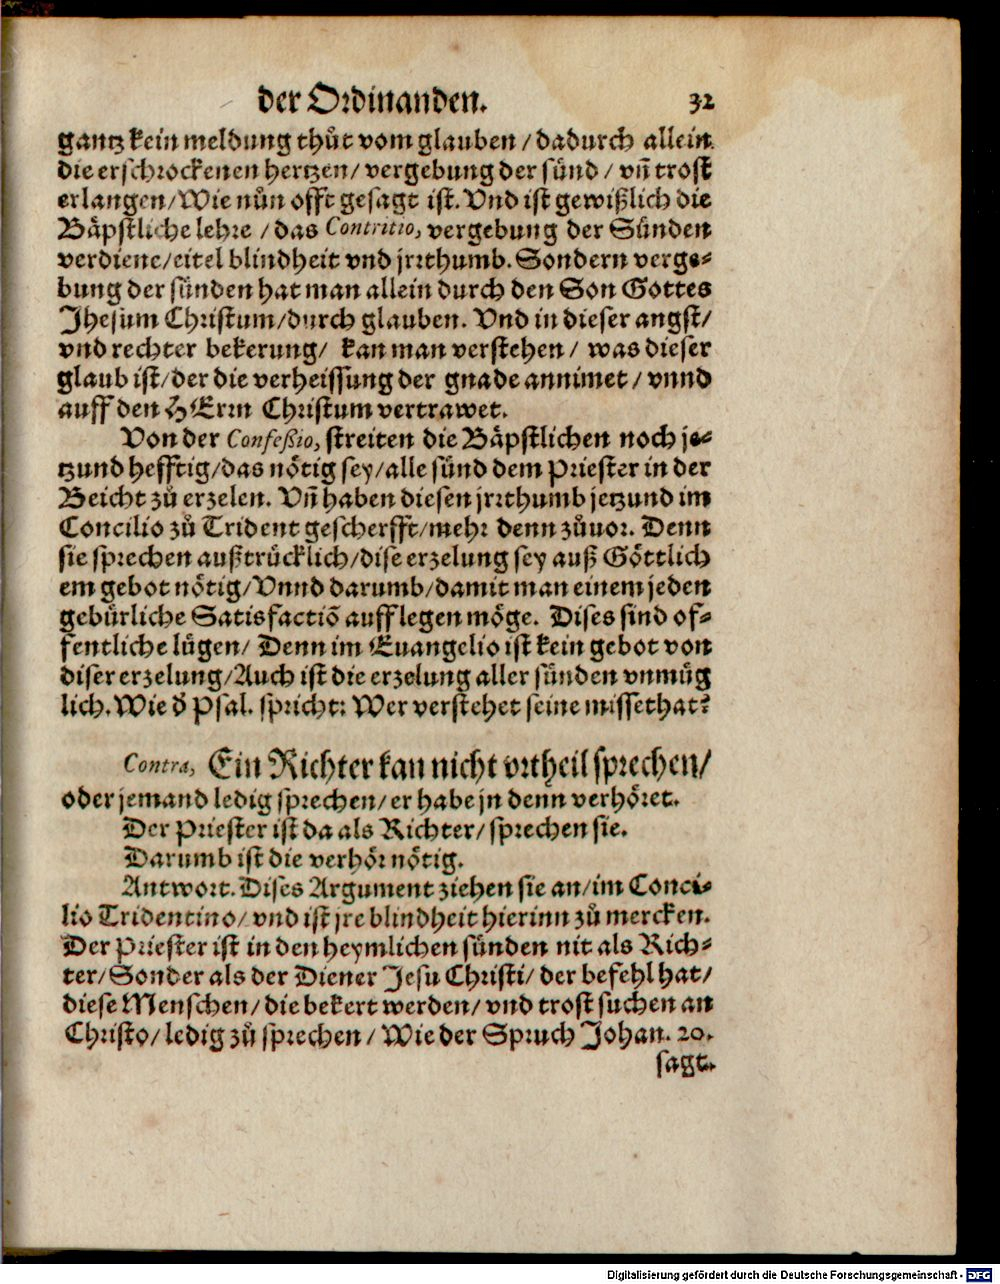 der Ordinanden. 32
gantz kein meldung thůt vom glauben / dadurch allein
die erschrockenen hertzen / vergebung der sünd / vñ trost
erlangen / Wie nůn offt gesagt ist. Vnd ist gewißlich die
Bäpstliche lehre / das Contritio, vergebung der Sünden
verdiene / eitel blindheit vnd jrrthumb. Sondern verge-
bung der sünden hat man allein durch den Son Gottes
Jhesum Christum / durch glauben. Vnd in dieser angst /
vnd rechter bekerung / kan man verstehen / was dieser
glaub ist / der die verheissung der gnade annimet / vnnd
auff den HErrn Christum vertrawet.
Von der Confeßio, streiten die Bäpstlichen noch je-
tzund hefftig / das nötig sey / alle sünd dem Priester in der
Beicht zů erzelen. Vñ haben diesen jrrthumb jetzund im
Concilio zů Trident gescherfft / mehr denn zůuor. Denn
sie sprechen außtrücklich / dise erzelung sey auß Göttlich
em gebot nötig / Vnnd darumb / damit man einem jeden
gebürliche Satisfactiõ aufflegen möge. Dises sind of-
fentliche lügen / Denn im Euangelio ist kein gebot von
diser erzelung / Auch ist die erzelung aller sünden vnmüg
lich. Wie d̄ Psal. spricht: Wer verstehet seine missethat?
Contra, Ein Richter kan nicht vrtheil sprechen /
oder jemand ledig sprechen / er habe jn denn verhöret.
Der Priester ist da als Richter / sprechen sie.
Darumb ist die verhör nötig.
Antwort. Dises Argument ziehen sie an / im Conci-
lio Tridentino / vnd ist jre blindheit hierinn zů mercken.
Der Priester ist in den heymlichen sünden nit als Rich-
ter / Sonder als der Diener Jesu Christi / der befehl hat /
diese Menschen / die bekert werden / vnd trost suchen an
Christo / ledig zů sprechen / Wie der Spruch Johan. 20.
sagt.
Digitalisierung gefördert durch die Deutsche Forschungsgemeinschaft - DFG